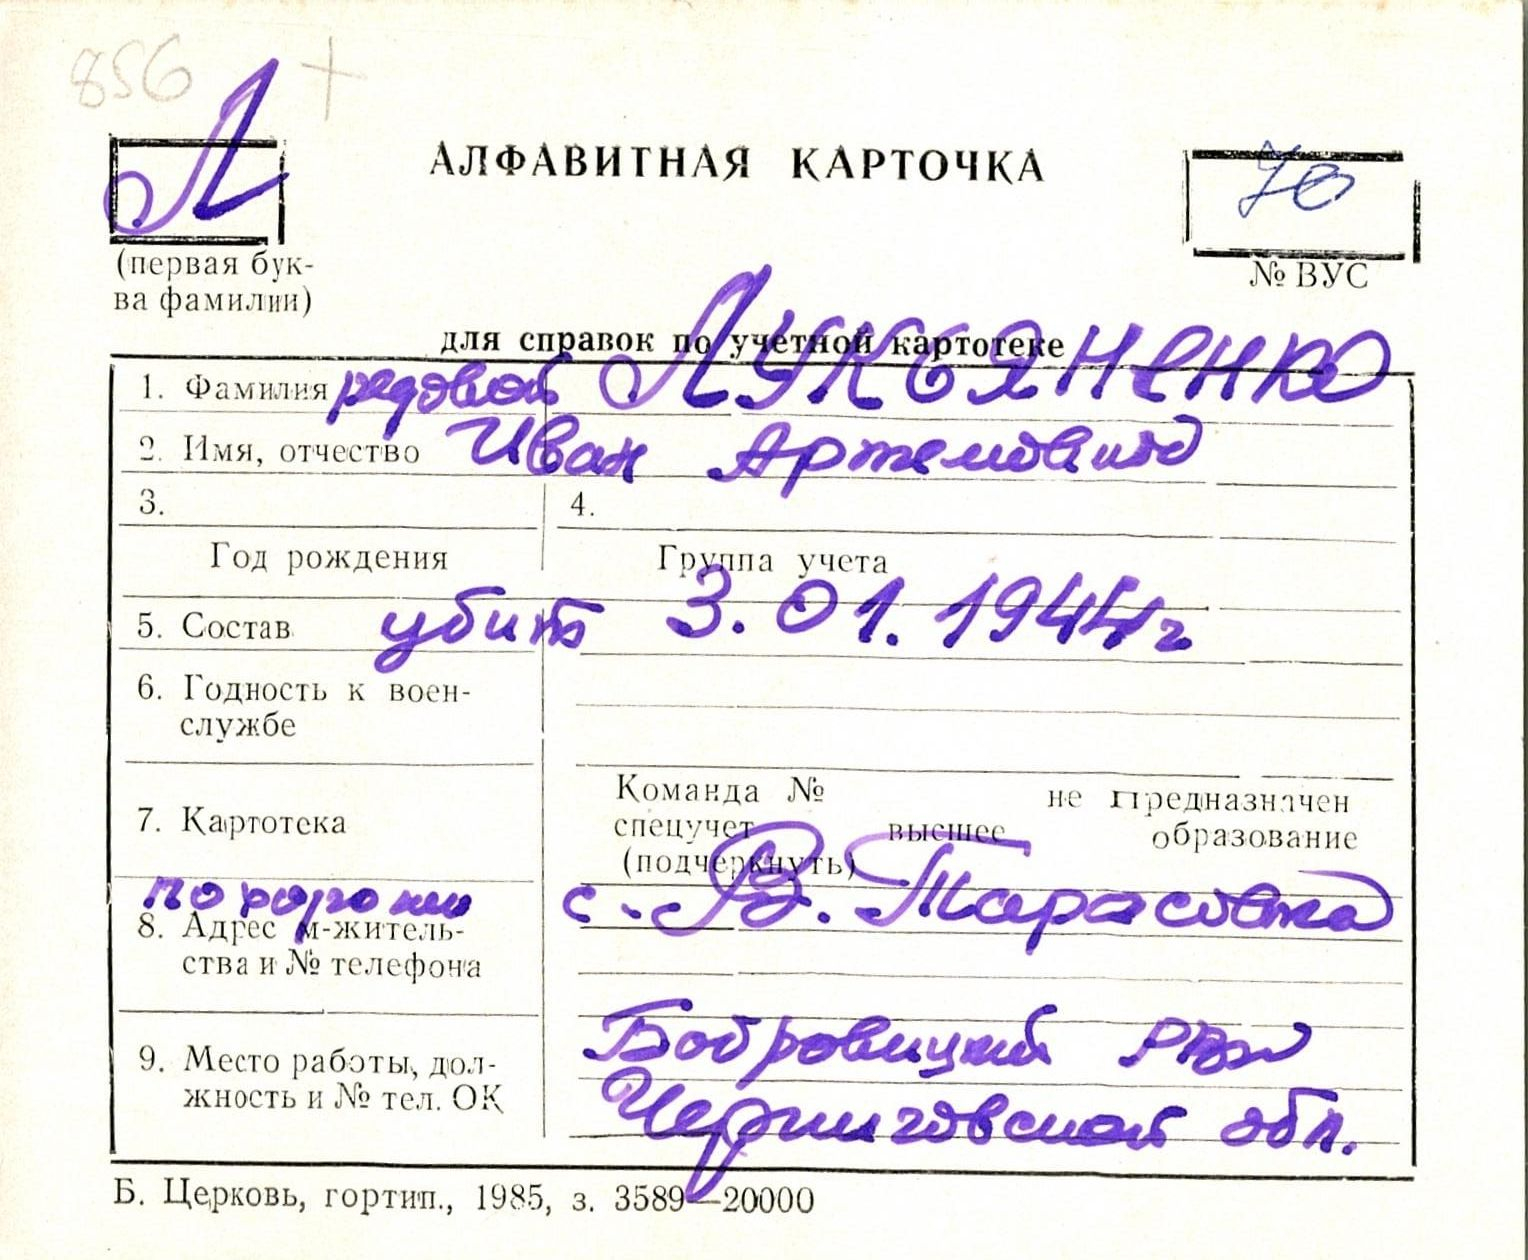 856 +
Л
АЛФАВИТНАЯ КАРТОЧКА
70
(первая бук-
ва фамилии)
№ ВУС
для справок по учетной картотеке
1. Фамилия рядовой ЛУКЬЯНЕНКО
2. Имя, отчество Иван Артемович
3. 4.
Год рождения Группа учета
5. Состав убит 3.01.1944г
6. Годность к воен-
службе
Команда № не предназначен
7. Картотека спецучет высшее образование
(подчеркнуть)
похорон с. В. Тарасовка
8. Адрес м-житель-
ства и № телефона
Бобровицкий РВК
9. Место работы, дол-
жность и № тел. ОК
Черниговская обл.
Б. Церковь, гортип., 1985, з. 3589—20000